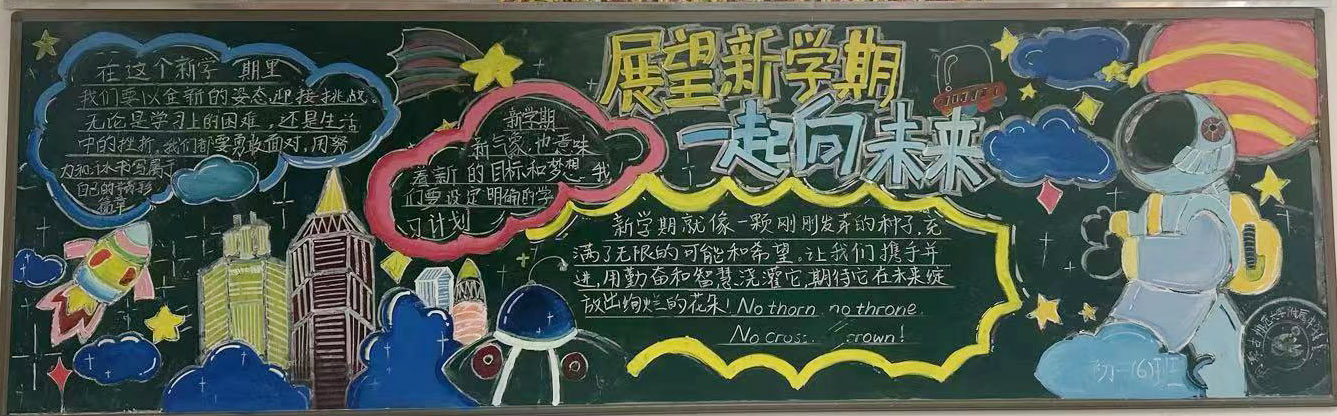 展望新学期
一起向未来
在这个新学期里
我们要以全新的姿态,迎接挑战。
无论是学习上的困难,还是生活
中的挫折,我们都要勇敢面对,用努
力和汗水书写属于
自己的精彩
篇章
新学期
新气象,也意味
着新的目标和梦想,我
们要设定明确的学
习计划
新学期就像一颗刚刚发芽的种子,充
满了无限的可能和希望。让我们携手并
进,用勤奋和智慧浇灌它,期待它在未来绽
放出绚烂的花朵!No thorn no throne
No cross. crown!
初一(6)班